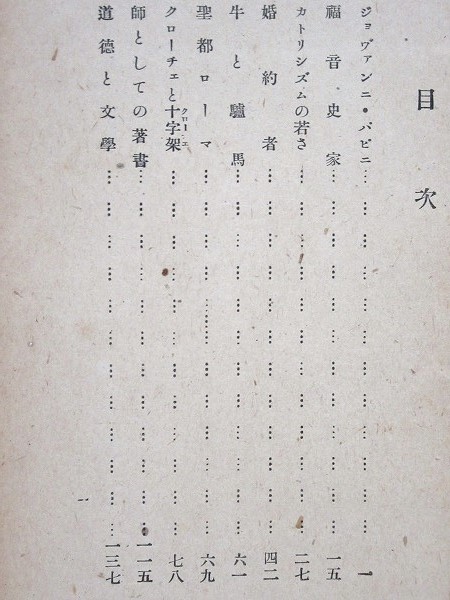 目次
ジョヴァンニ・パピニ……………………………………一
福音史家……………………………………一五
カトリシズムの若さ……………………………………二七
婚約者……………………………………四二
牛と驢馬……………………………………六一
聖都ローマ……………………………………六九
クローチェと十字架クローェ……………………………………七八
師としての著書……………………………………一一五
道德と文學……………………………………一三七
一